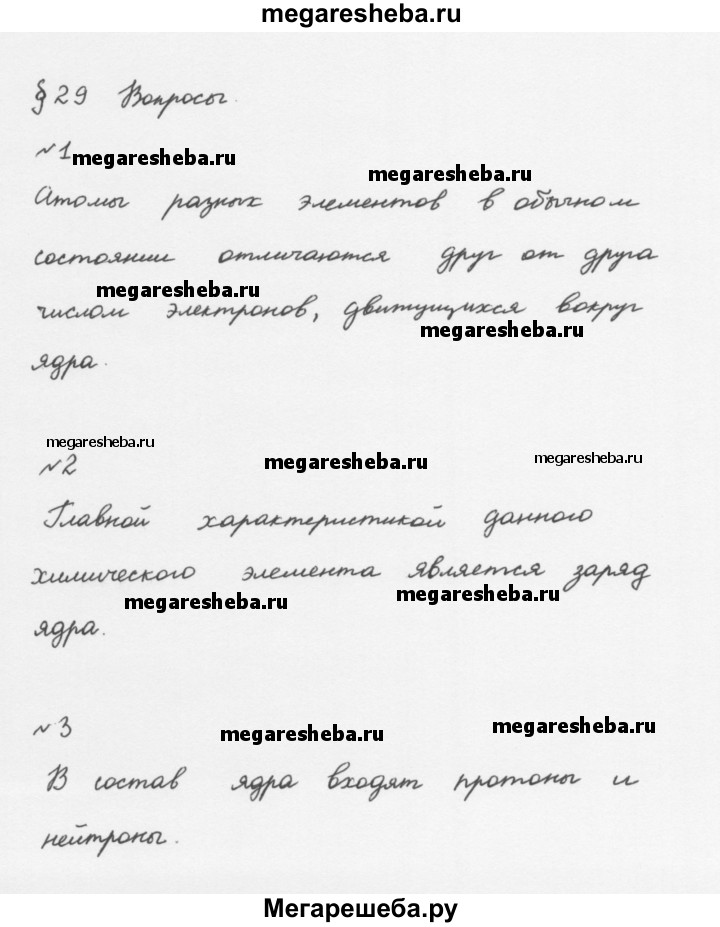 megaresheba.ru
§ 29 Вопросы.
№1
megaresheba.ru
megaresheba.ru
Атомы разных элементов в обычном
состоянии отличаются друг от друга
megaresheba.ru
числом электронов, движущихся вокруг
megaresheba.ru
ядра.
megaresheba.ru
№2
megaresheba.ru
megaresheba.ru
Главной характеристикой данного
химического элемента является заряд
megaresheba.ru
megaresheba.ru
ядра.
№3
megaresheba.ru
megaresheba.ru
В состав ядра входят протоны и
нейтроны.
Мегарешеба.ру